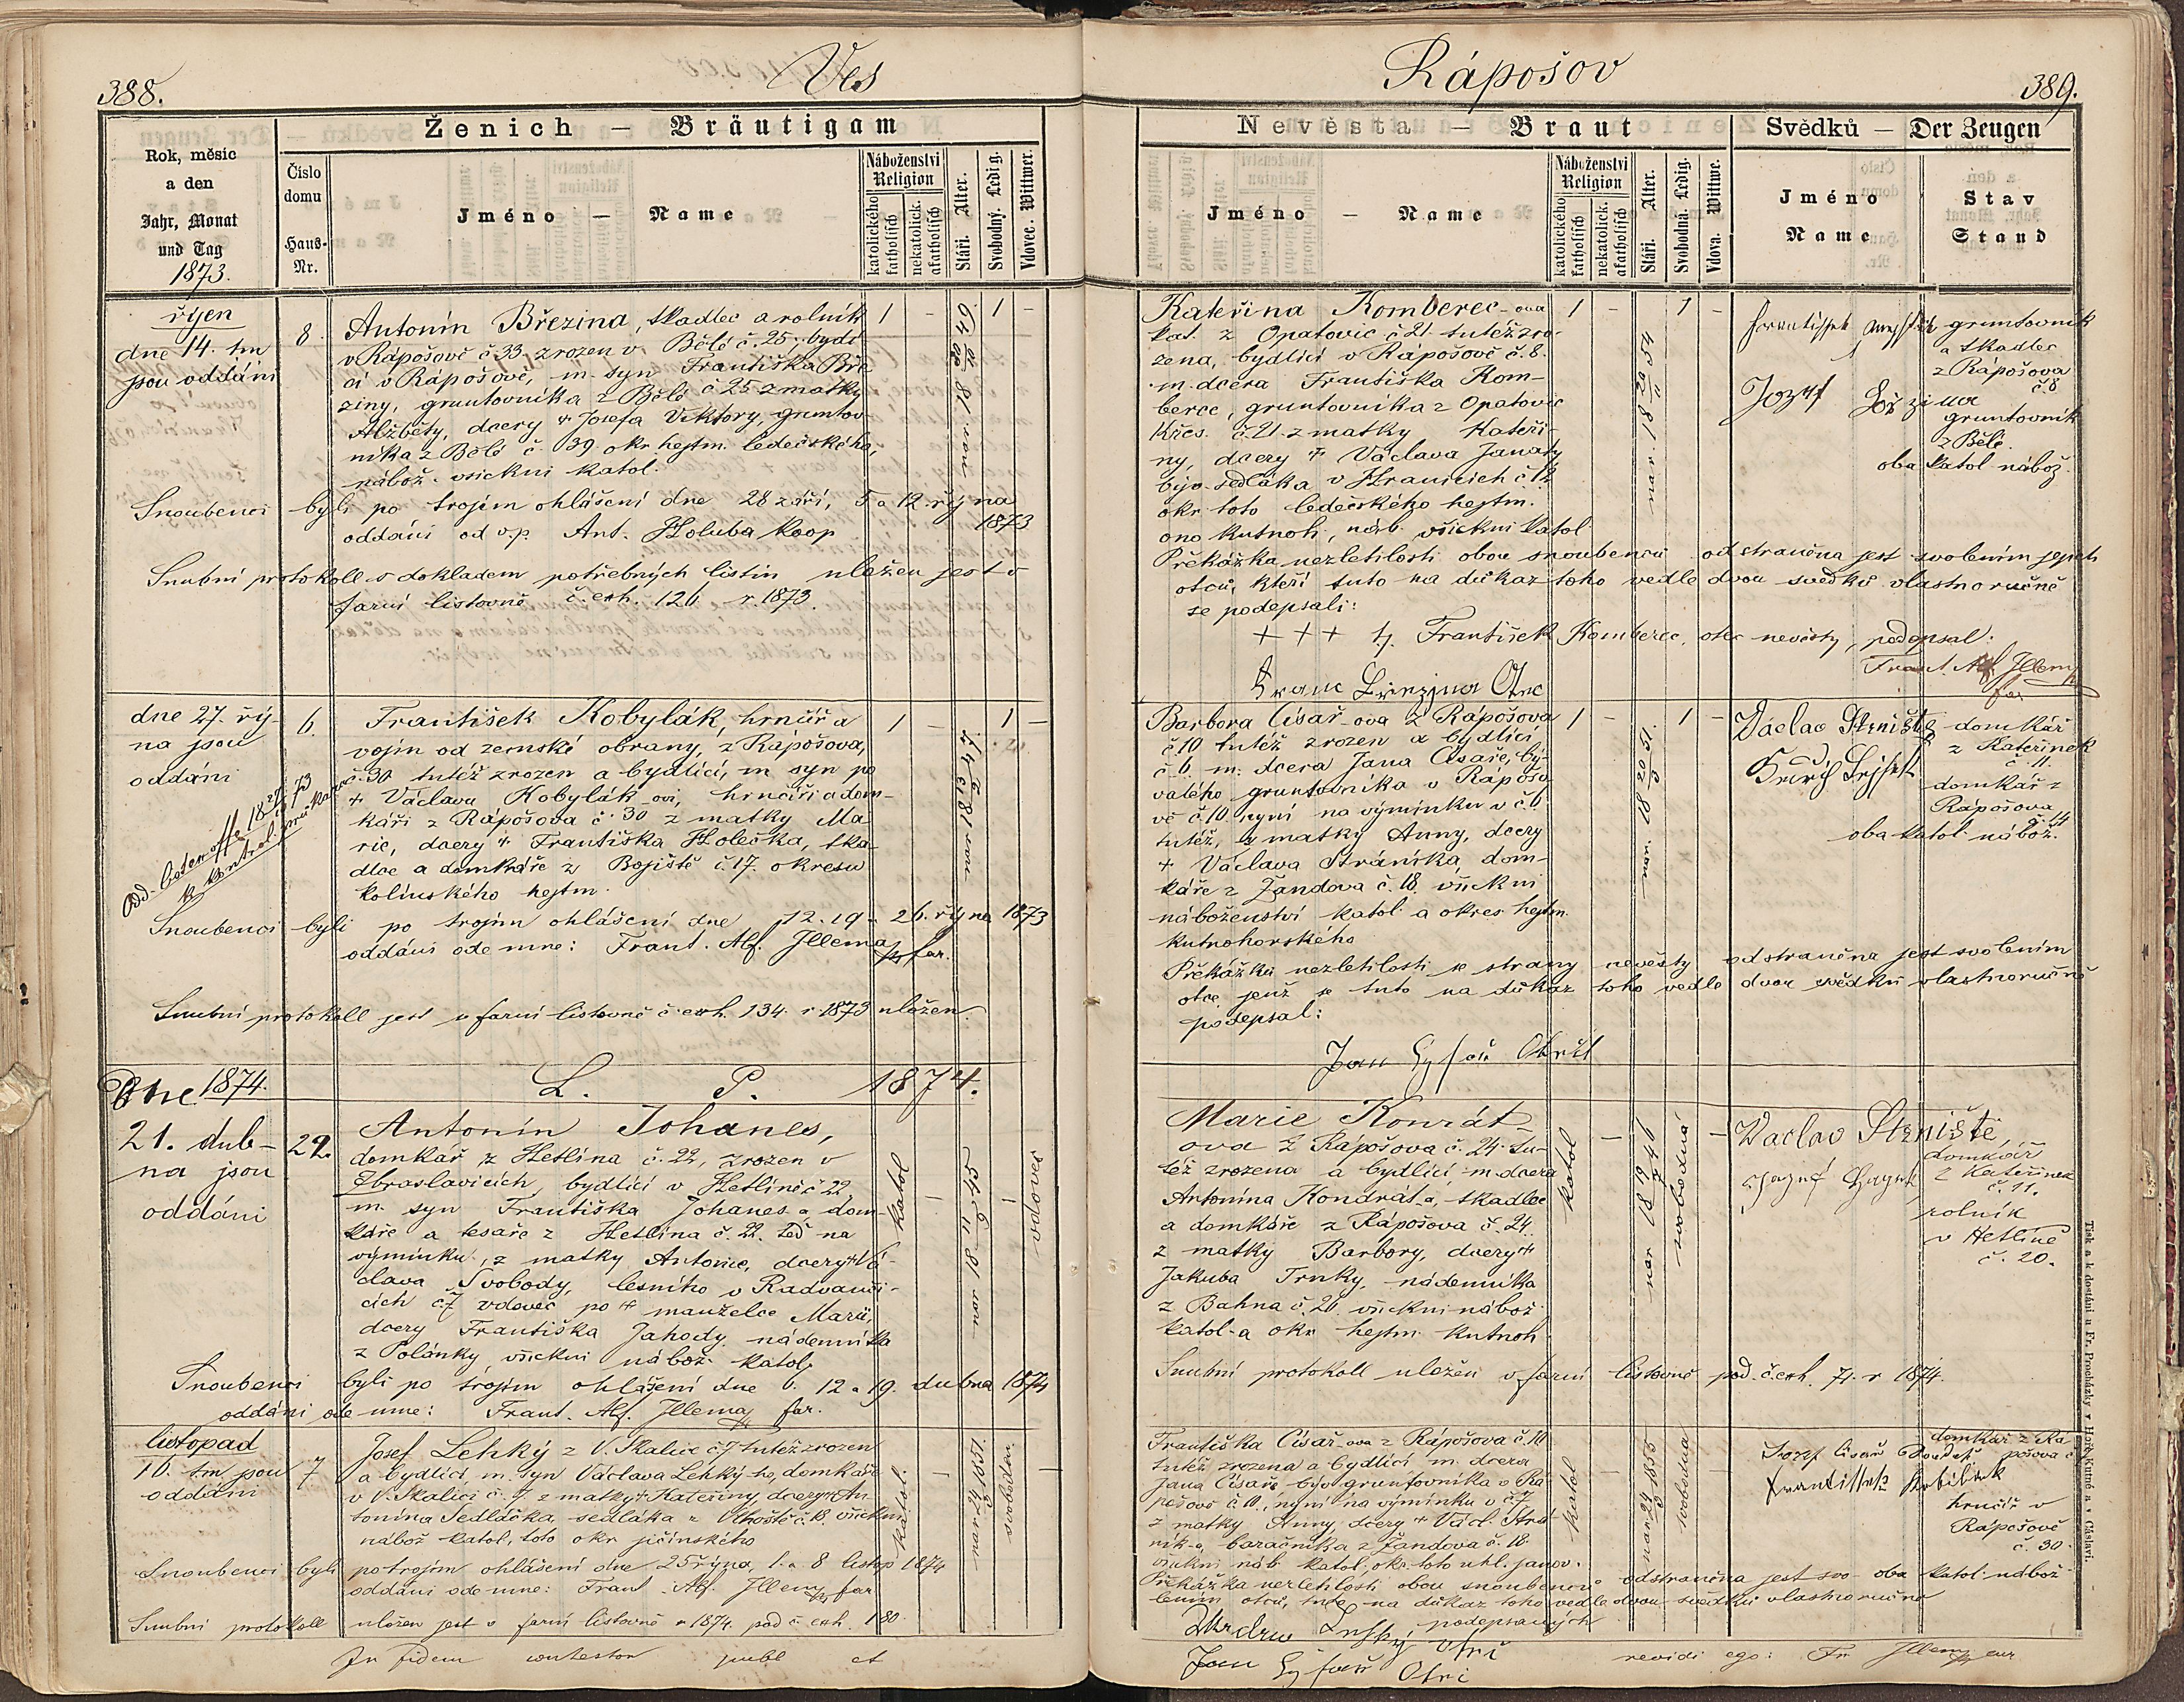 388.
Ves
Ženich — Bräutigam
Rok, měsíc
a den
Jahr, Monat
und Tag
1873.
Číslo
domu
Haus-
Nr.
Jméno — Name
Náboženství
Religion
katolického
katholisch
nekatolick.
akatholisch
Stáří. Alter.
Svobodný. Ledig.
Vdovec. Wittwer.
říjen
dne 14. tm
jsou oddáni
8.
Antonín Březina, tkadlec a rolník
v Rápošově č 33 zrozen v Bělé č. 25. bydlí
cí v Rápošově, m. syn Františka Bře
ziny, gruntovníka z Bělé č 25 z matky
Alžběty, dcery + Josefa Viktory, gruntov-
níka z Bělé č. 39. okr. hejtm. ledečského,
nábož. všickni katol.
1 - 1 -
Snoubenci byli po trojím ohlášení dne 28 září, 5 a 12. října
1873
oddáni od v.p. Ant. Holuba koop
Snubní protokoll s dokladem potřebných listin uložen jest v
farní listovně č. exh. 126 r. 1873.
dne 27. ří-
na jsou
oddáni
6.
František Kobylák, hrnčíř a
vojín od zemské obrany, z Rápošova,
č. 30 tutéž zrozen a bydlící, m syn po
+ Václavu Kobylák-ovi, hrnčíři a dom-
káři z Rápošova č. 30 z matky Ma-
rie, dcery + Františka Holečka, tka-
dlce a domkáře z Bojiště č. 17. okresu
kolínského hejtm.
1 - 1 -
Snoubenci byli po trojím ohlášení dne 12. 19. 26. října 1873
oddáni ode mne: Frant. Alf. Jllem far.
Snubní protokoll jest v farní listovně č. exh. 134. r. 1873 uložen
Dne 1874.
L. P. 1874.
21. dub-
na jsou
oddáni
22.
Antonín Johanes,
domkář z Hetlína č. 22, zrozen v
Zbraslavicích, bydlící v Hetlíně č 22,
m. syn Františka Johanes-a dom-
káře a tesaře z Hetlína č. 22. teď na
výmínku, z matky Antonie, dcery + Vá-
clava Svobody, lesního v Radvanči-
cích č. 7 vdovec po + manželce Marii,
dcery Františka Jahody, nádenníka
z Polánky všickni nábož. katol.
katol
vdovec
Snoubenci byli po trojím ohlášení dne 6. 12 a 19. dubna 1874
oddáni ode mne: Frant. Alf. Jllem far.
listopad
16. t.m. jsou
oddáni
7
Josef Lehký z V. Skalice č. 7 tutéž zrozen
a bydlící, m. syn Václava Lehký-ho, domkáře
v V. Skalici č. 7 z matky + Kateřiny, dcery + An-
tonína Sedláčka, sedláka z Lhostě č. 13. všickni
nábož katol, toto okr jičínského
katol.
svoboden
Snoubenci byli po trojím ohlášení dne 25 října, 1. a 8 listop 1874
oddáni ode mne: Frant. Alf. Jllem far
Snubní protokoll uložen jest v farní listovně r 1874. pod č. exh. 180
In fidem contestor publ et
Rápošov
389.
Nevěsta — Braut
Svědků — Der Zeugen
Jméno — Name
Náboženství
Religion
katolického
katholisch
nekatolick.
akatholisch
Stáří. Alter.
Svobodná. Ledig.
Vdova. Wittwe.
Jméno
Name
Stav
Stand
Kateřina Komberec-ova
kat. z Opatovic č 21. tutéž zro-
zena, bydlící v Rápošově č. 8.
m. dcera Františka Kom-
berce, gruntovníka z Opatovic
Křes. č. 21. z matky Kateři-
ny, dcery + Václava Janaty
býv. sedláka v Hranicích č 12
okr. toto ledečského hejtm.
ono kutnoh, náb. všickni katol
1 - 1 -
gruntovník
a tkadlec
z Rápošova
č 8
gruntovník
z Bělé
oba katol nábož.
Překážka nezletilosti obou snoubenců odstraněna jest svolením jejich
otců, kteří tuto na důkaz toho vedle dvou svědků vlastnoručně
se podepsali:
+ + + František Komberec, otec nevěsty, podepsal:
Frant. Alf. Jllem
far
Franc Březina Otec
Barbora Císař-ova z Rápošova
č 10 tutéž zrozen a bydlící
č. 6. m. dcera Jana Císaře, bý-
valého gruntovníka v Rápošo-
vě č. 10. nyní na výmínku v č. 6
tutéž, z matky Anny, dcery
+ Václava Stráníka, dom-
káře z Žandova č. 18. všickni
náboženství katol. a okres. hejtm.
kutnohorského
1 - 1 -
Václav Strniště
domkář
z Kateřinek
č. 11.
domkář z
Rápošova
č. 14
oba katol nábož.
Překážka nezletilosti se strany nevěsty odstraněna jest svolením
otce jenž se tuto na důkaz toho vedle dvou svědků vlastnoručně
podepsal:
Marie Konrát-
ova z Rápošova č. 24. tu-
též zrozena a bydlící, m. dcera
Antonína Kondrát-a, tkadlce
a domkáře z Rápošova č. 24.
z matky Barbory, dcery +
Jakuba Trnky, nádenníka
z Bahna č. 26. všickni nábož.
katol. a okr. hejtm. kutnoh
katol
svobodná
Vaclav Strniště,
domkář
z Kateřinek
č. 11.
rolník
v Hetlíně
č. 20.
Snubní protokoll uložen v farní listovně pod č. exh. 71. r 1874.
Františka Císař-ova z Rápošova č. 10
tutéž zrozena a bydlící m. dcera
Jana Císaře býv. gruntovníka v Rá-
pošově č 10., nyní na výmínku v č. 7
z matky Anny, dcery + Václ. Strá-
ník-a, baráčníka z Žandova č. 18.
všickni náb. katol, okr. toto uhl. janov.
katol
svobodna
domkář z Rá
pošova
hrnčíř v
Rápošově
č. 30
oba katol. nábož
Překážka nezletilosti obou snoubenců odstraněna jest svo-
lením otců, tuto na důkaz toho vedle dvou svědků vlastnoručně
podepsaných
revidi ego: Fr Jllem cur
Tisk a k dostání u Fr. Procházky v Hoře Kutné a v Čáslavi.